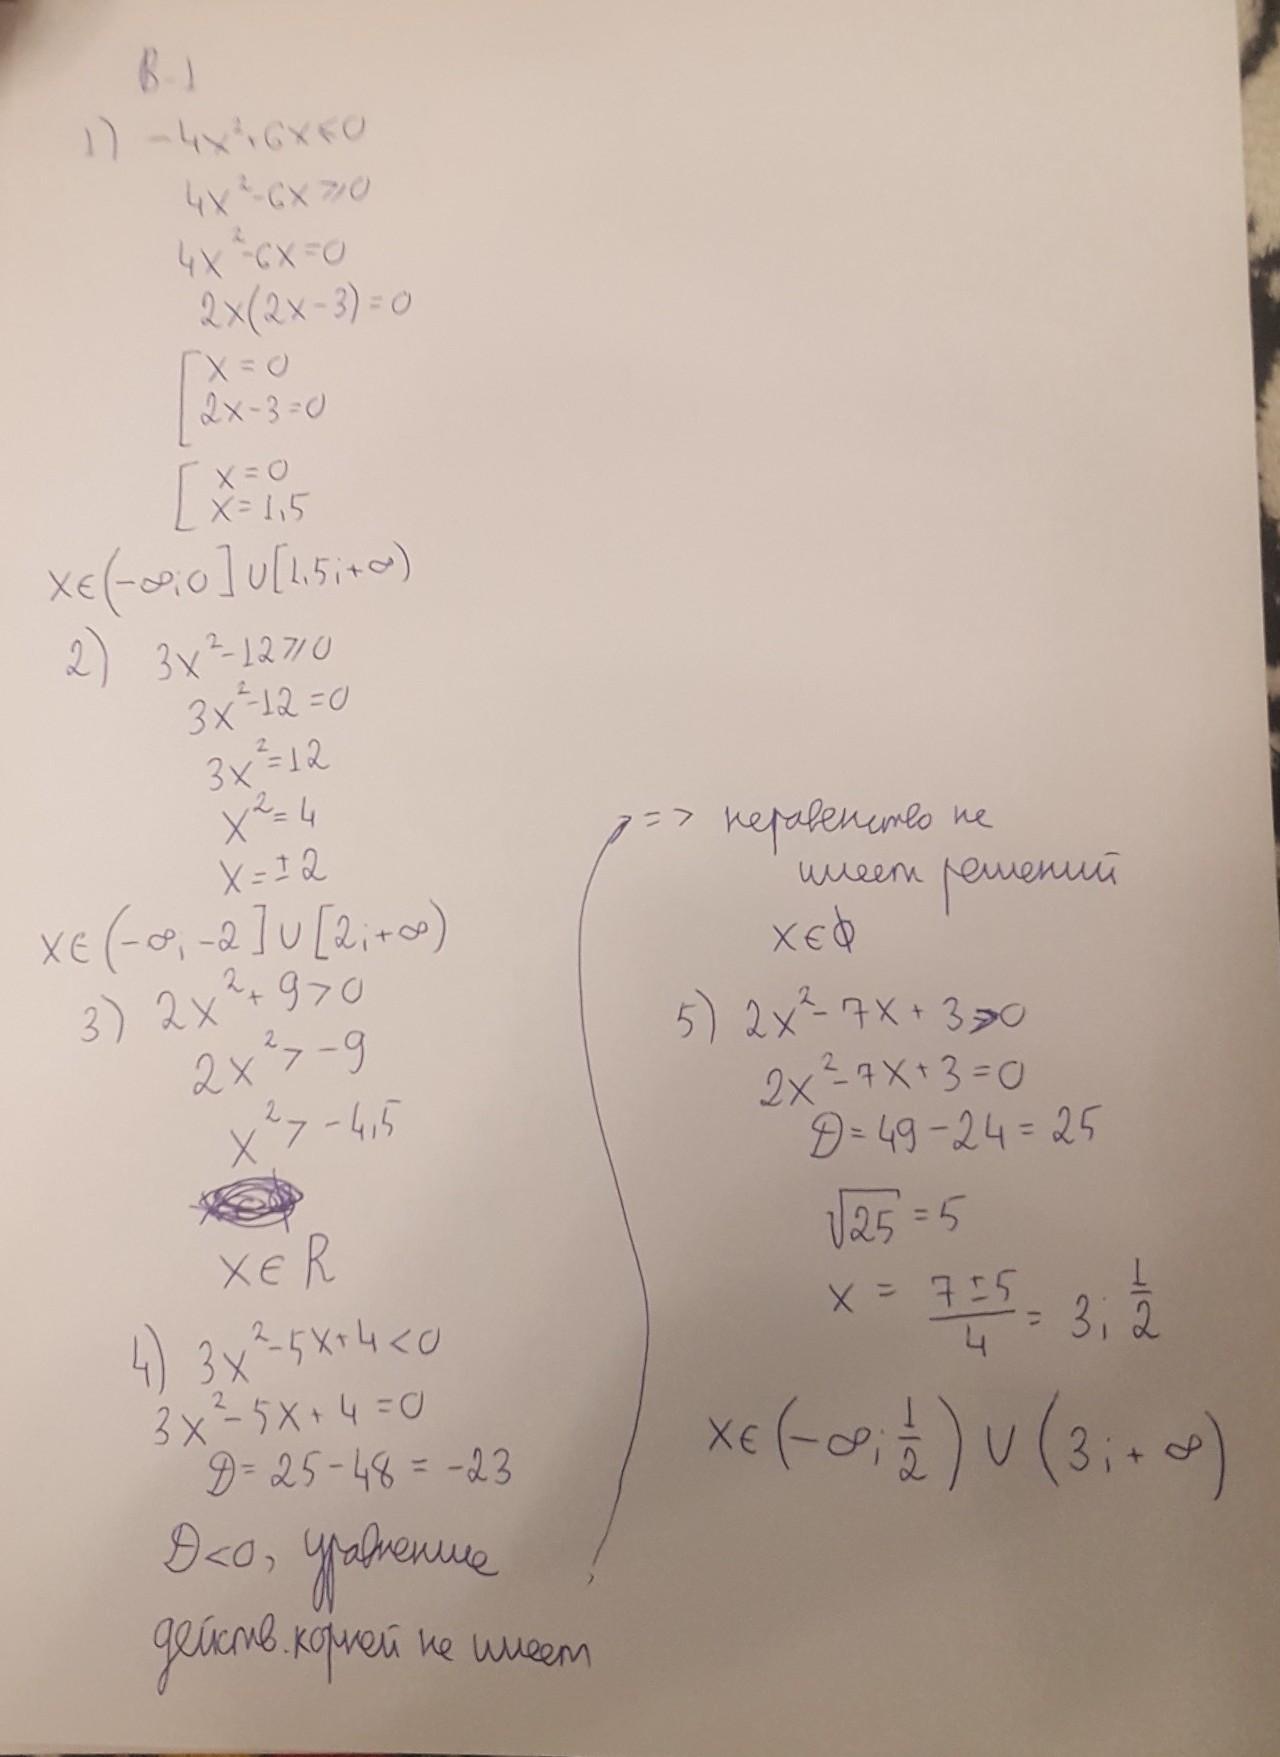 В-1
1) -4x²+6x≤0
4x²-6x⩾0
4x²-6x=0
2x(2x-3)=0
[x=0
2x-3=0
[x=0
x=1,5
x∈(-∞;0]∪[1,5;+∞)
2) 3x²-12⩾0
3x²-12=0
3x²=12
x²=4
x=±2
x∈(-∞;-2]∪[2;+∞)
3) 2x²+9>0
2x²>-9
x²>-4,5
x∈R
4) 3x²-5x+4<0
3x²-5x+4=0
D=25-48=-23
D<0, уравнение
действ. корней не имеет
=> неравенство не
имеет решений
x∈∅
5) 2x²-7x+3>0
2x²-7x+3=0
D=49-24=25
√25=5
x=(7±5)/4=3; 1/2
x∈(-∞; 1/2)∪(3;+∞)